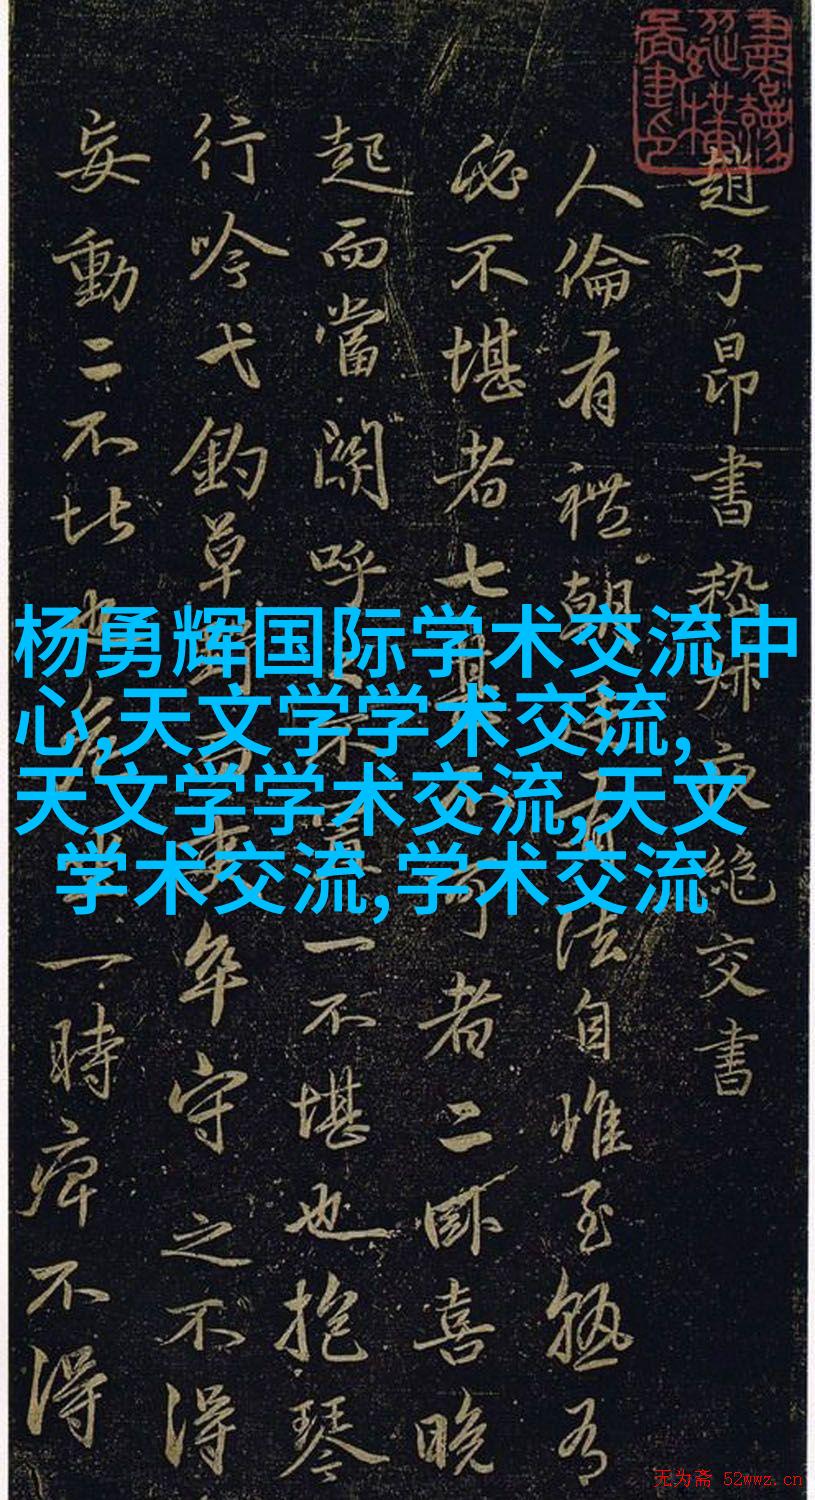 趙子昂書嵇叔夜絕交書
人倫有禮朝廷有法自惟至熟有
必不堪者七甚不可者二卧喜晚
起而當關呼之不置一不堪也抱琴
行吟弋釣草野而吏卒守之不得
妄動二不堪也危坐一時痺不得
杨勇辉国际学术交流中
心,天文学学术交流,
天文学学术交流,天文
学术交流,学术交流
无为斋 52wwz.cn